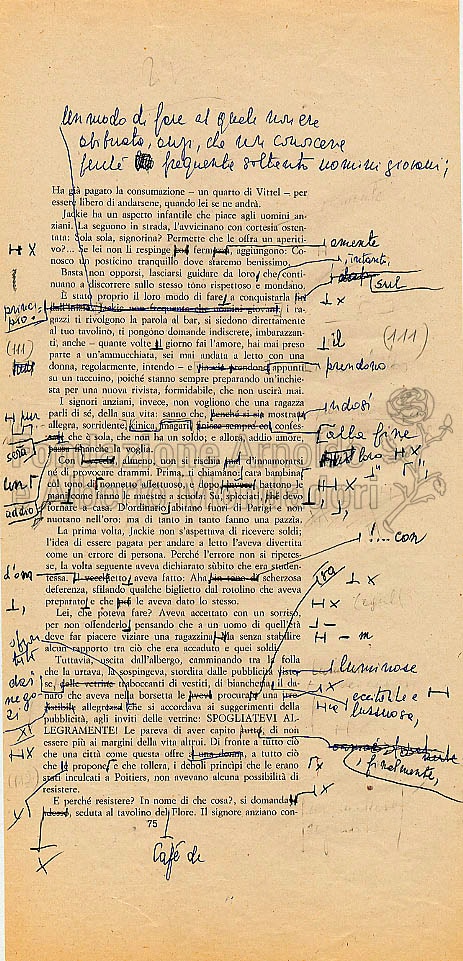 Un modo di fare al quale non era
abituata, anzi, che non conosceva
perché frequenta soltanto uomini giovani;
Ha già pagato la consumazione – un quarto di Vittel – per
essere libero di andarsene, quando lei se ne andrà.
Jackie ha un aspetto infantile che piace agli uomini an-
ziani. La seguono in strada, l'avvicinano con cortesia osten-
tata: Sola sola, signorina? Permette che le offra un aperiti-
vo?... Se lei non li respinge, aggiungono: Co-
nosco un posticino tranquillo dove staremo benissimo.
amente
Basta non opporsi, lasciarsi guidare da loro che conti-
nuano a discorrere sullo stesso tono rispettoso e mondano.
, intanto,
sul
È stato proprio il loro modo di fare a conquistarla fin
dall'inizio. Jackie non frequenta che uomini giovani: i ra-
princi-
pio:
gazzi ti rivolgono la parola al bar, si siedono direttamente
al tuo tavolino, ti pongono domande indiscrete, imbarazzan-
ti, anche – quante volte il giorno fai l'amore, hai mai preso
il
(111)
(111)
parte a un'ammucchiata, sei mai andata a letto con una
donna, regolarmente, intendo – e prendendo appunti
prendono
su un taccuino, poiché stanno sempre preparando un'inchie-
sta per una nuova rivista, formidabile, che non uscirà mai.
I signori anziani, invece, non vogliono che una ragazza
parli di sé, della sua vita: sanno che, perché si sia mostrata
ndosi
allegra, sorridente, finisca sempre col confes-
pur
sare che è sola, che non ha un soldo; e allora, addio amore,
sola
alla fine
passa finanche la voglia.
Con almeno, non si rischia d'innamorarsi
né di provocare drammi. Prima, ti chiamano: cara bambina
col tono di nonnetto affettuoso, e dopo battono le
un
mani come fanno le maestre a scuola: Su, spicciati, che devo
tornare a casa. D'ordinario abitano fuori di Parigi e non
addio
nuotano nell'oro: ma di tanto in tanto fanno una pazzia.
La prima volta, Jackie non s'aspettava di ricevere soldi;
l'idea di essere pagata per andare a letto l'aveva divertita
come un errore di persona. Perché l'errore non si ripetes-
!... con
se, la volta seguente aveva dichiarato sùbito che era studen-
tessa. aveva fatto: Aha, scherzosa
d'om
deferenza, sfilando qualche biglietto dal rotolino che aveva
preparato e che le aveva dato lo stesso.
Lei, che poteva fare? Aveva accettato con un sorriso,
per non offenderlo, pensando che a un uomo di quell'età
deve far piacere viziare una ragazzina, senza stabilire
alcun rapporto tra ciò che era accaduto e quei soldi.
Tuttavia, uscita dall'albergo, camminando tra la folla
che la urtava, la sospingeva, stordita dalle pubblicità viste-
luminose
se, dalle vetrine traboccanti di vestiti, di biancheria, il da-
dai
naro che aveva nella borsetta le procurato una
negozi
eccitante e
lussuosa,
allegrezza che si accordava ai suggerimenti della
pubblicità, agli inviti delle vetrine: SPOGLIATEVI AL-
LEGRAMENTE! Le pareva di aver capito tutto, di non
essere più ai margini della vita altrui. Di fronte a tutto ciò
che una città come questa offre, a tutto ciò
, finalmente,
che le propone e che tollera, i deboli princìpi che le erano
stati inculcati a Poitiers, non avevano alcuna possibilità di
resistere.
E perché resistere? In nome di che cosa?, si domanda
adesso, seduta al tavolino del Flore. Il signore anziano con-
75
Café de